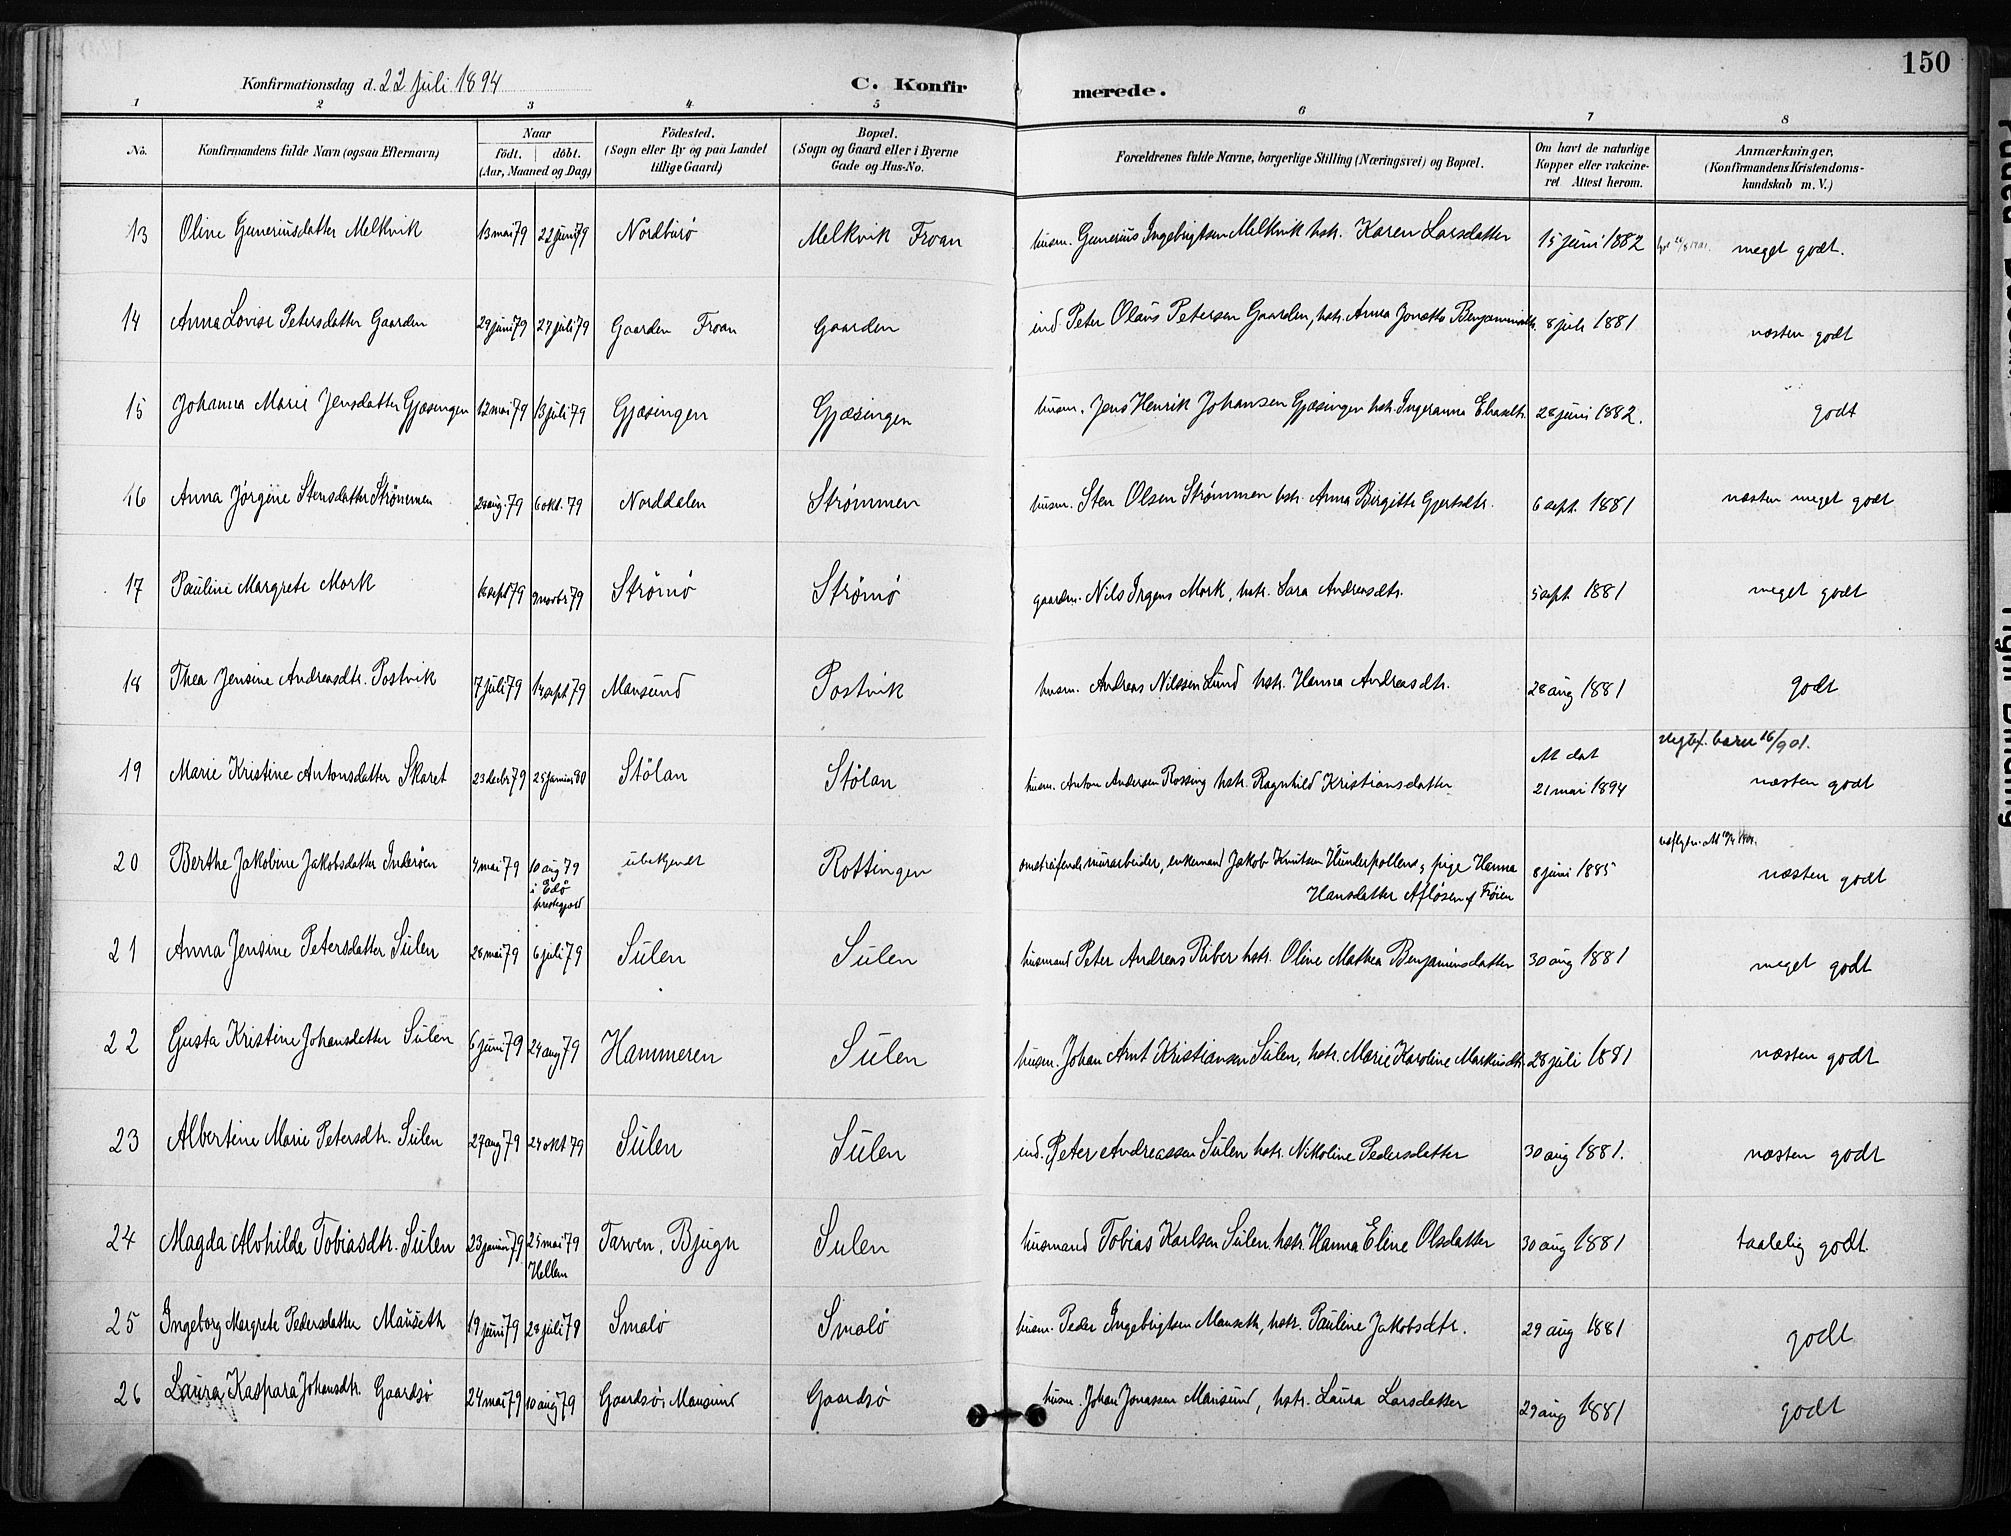 150
Konfirmationsdag d. 22 juli 1894
C. Konfirmerede.
1 2 3 4 5 6 7 8
No. Konfirmandens fulde Navn (ogsaa Efternavn) Naar födt. döbt. (Aar, Maaned og Dag) Födested. (Sogn eller By og paa Landet tillige Gaard) Bopæl. (Sogn og Gaard eller i Byerne Gade og Hus-No. Forældrenes fulde Navne, borgerlige Stilling (Næringsvei) og Bopæl. Om havt de naturlige Kopper eller vakcineret Attest herom. Anmærkninger. (Konfirmandens Kristendomskundskab m. V.)
13 Oline Guneriusdatter Melkvik 13 mai 79 22 juni 79 Nordburø Melkvik Froan husm. Gunerius Ingebrigtsen Melkvik hstr. Karen Larsdatter 15 juni 1882 meget godt.
14 Anna Lovise Petersdatter Gaarden 29 juni 79 27 juli 79 Gaarden Froan Gaarden ind Peter Olaus Petersen Gaarden, hstr. Anna Jonetta Benjaminsdtr. 8 juli 1881 næsten godt
15 Johanna Marie Jensdatter Gjæsingen 12 mai 79 13 juli 79 Gjæsingen Gjæsingen husm. Jens Henrik Johansen Gjæsingen hstr. Ingeranna Eliasdtr. 28 juni 1882. godt
16 Anna Jörgine Stensdatter Strömmen aug. 79 6 okt. 79 Norddalen Strømmen husm. Sten Olsen Strømmen hstr. Anna Birgitte Gjertsdtr. 6 sept. 1881 næsten meget godt
17 Pauline Margrete Mork 16 sept 79 9 novbr 79 Strömö Strömö gaardm. Nils Irgens Mork, hstr. Sara Andreasdtr. 5 sept. 1881 meget godt
18 Thea Jensine Andreasdtr. Postvik 7 juli 79 14 sept 79 Mausund Postvik husm. Andreas Nilssen Lund hstr. Hanna Andreasdtr. 28 aug 1881 godt
19 Marie Kristine Antonsdatter Skaret 23 decbr 79 25 januar 80 Stölan Stölan husm. Anton Andersen Rossing hstr. Ragnhild Kristiansdatter At dat 21 mai 1894 næsten godt
20 Berthe Jakobine Jakobsdatter Inderöen 4 mai 79 10 aug 79 i Edö ubekjendt Rottingen omstreifende murarbeider, enkemand Jakob Knutsen Hunderpollen & pige Hanna
Hansdatter Afløsen af Frøien 8 juni 1885 næsten godt
21 Anna Jensine Petersdatter Sulen 28 mai 79 6 juli 79 Sulen Sulen husmand Peter Andreas Riber hstr. Oline Mathea Benjaminsdatter 30 aug 1881 meget godt
22 Gusta Kristine Johansdatter Sulen 6 juni 79 24 aug 79 Hammeren Sulen husm. Johan Arnt Kristiansen Sulen, hstr. Marie Karoline Markusdtr. 28 juli 1881 næsten godt
23 Albertine Marie Petersdtr. Sulen 27 aug 79 24 okt 79 Sulen Sulen ind. Peter Andreassen Sulen hstr. Nikoline Pedersdatter 30 aug 1881. næsten godt
24 Magda Alvhilde Tobiasdtr. Sulen 23 januar 79 25 mai 79 Hellem Tarven, Bjugn Sulen husmand Tobias Karlsen Sulen hstr. Hanna Eline Olsdatter 30 aug 1881 taalelig godt.
25 Ingeborg Margrete Pedersdatter Mauseth 19 juni 79 28 juli 79 Smalø Smalø husm. Peder Ingebrigtsen Mauseth, hstr. Pauline Jakobsdtr. 29 aug 1881 godt
26 Laura Kaspara Johansdtr. Gaardsø 24 mai 79 10 aug 79 Gaardsö, Mausund Gaardsö husm. Johan Jonassen Mausund, hstr. Laura Larsdatter 29 aug 1881 godt